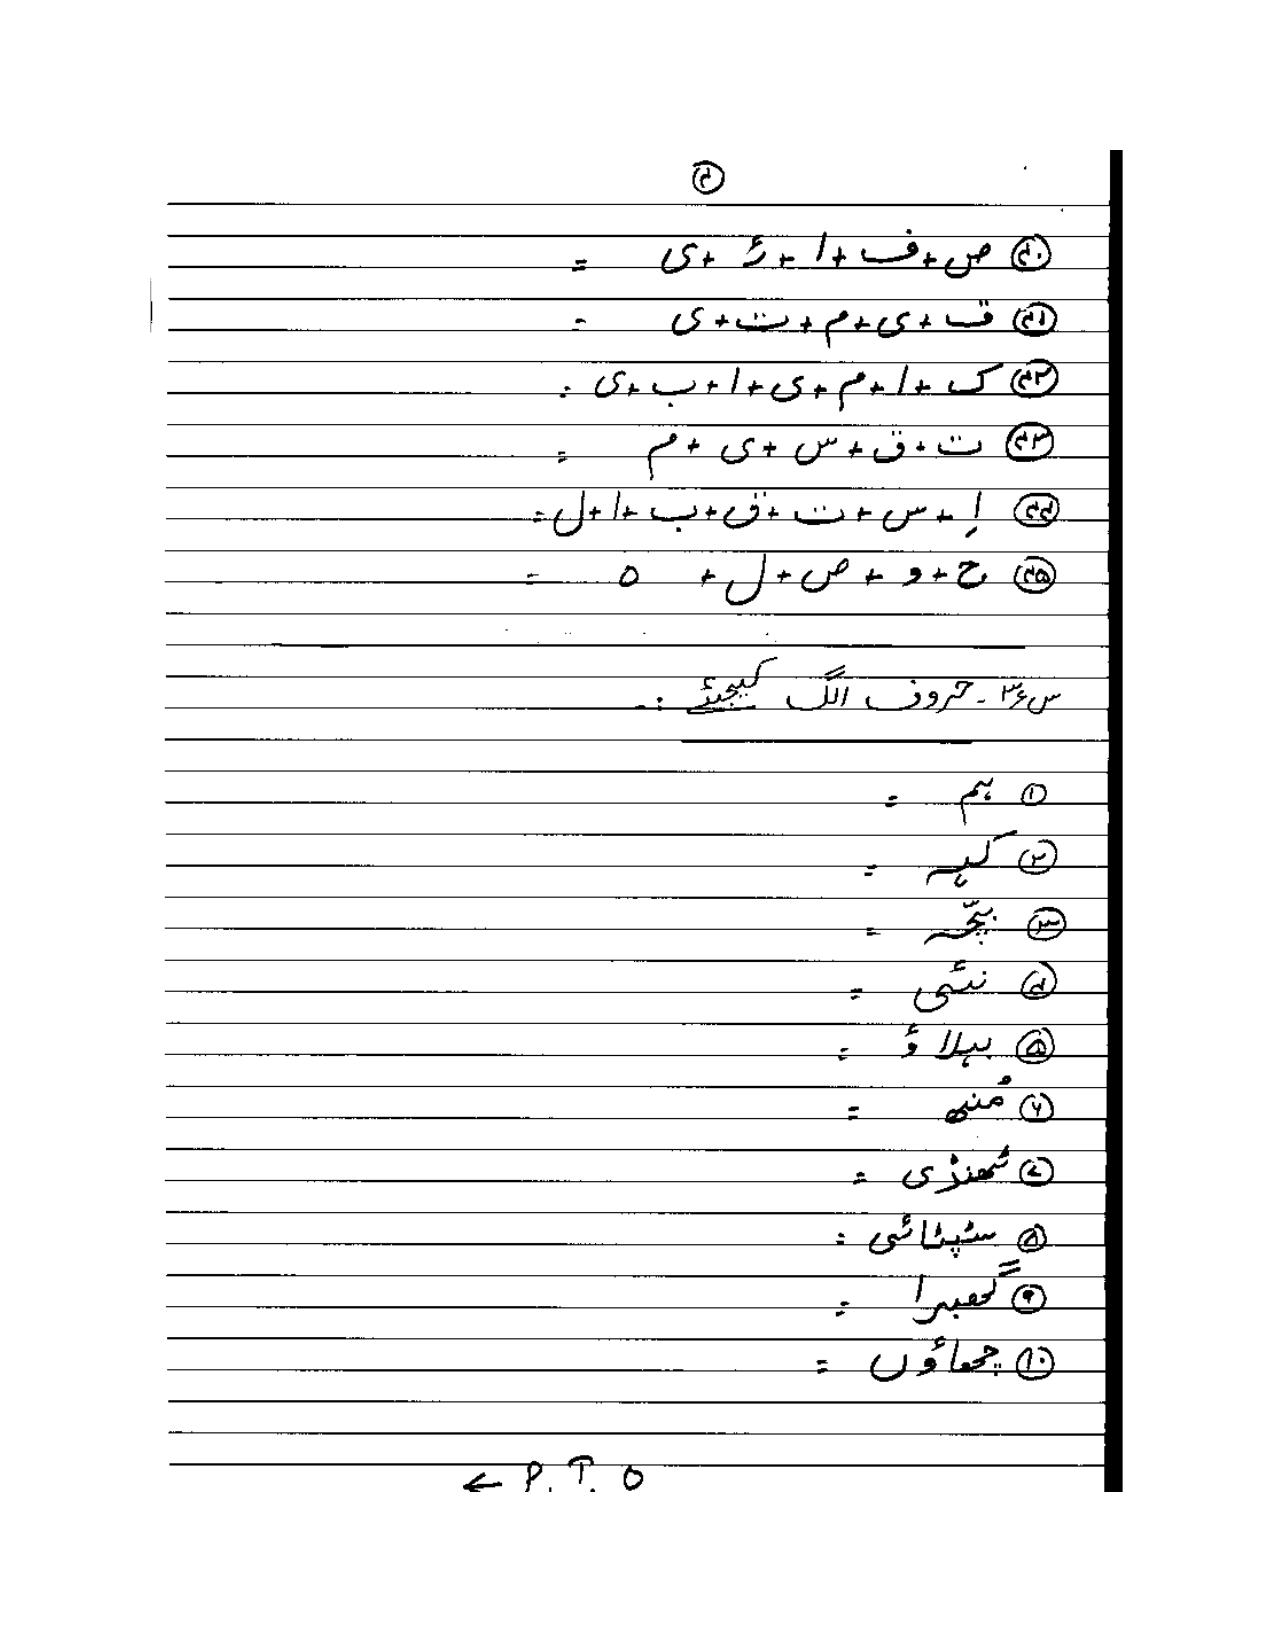 ۴
۴۰ ص + ف + ا + ئ + ی =
۴۱ ق + ی + م + ت + ی =
۴۲ ک + ا + م + ی + ا + ب + ی =
۴۳ ت + ق + س + ی + م =
۴۴ اِ + س + ت + ق + ب + ا + ل =
۴۵ ح + و + ص + ل + ہ =
س۳۶ - حروف الگ کیجئے :-
۱ ہم =
۲ کہہ =
۳ بچّہ =
۴ نئی =
۵ بہلاؤ =
۶ مُنہ =
۷ ٹھنڈی =
۸ سٹپٹائی =
۹ گھبرا =
۱۰ چھاؤں =
← P.T.O